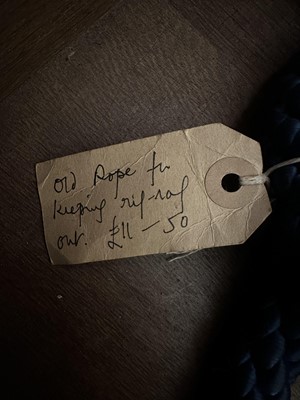 Old Rope for
Keeping rif-raf
out. £11-50